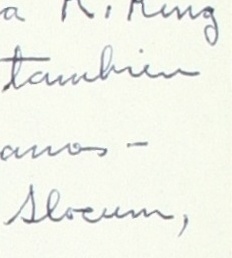 a K. King
tambien
anos -
Slocum,